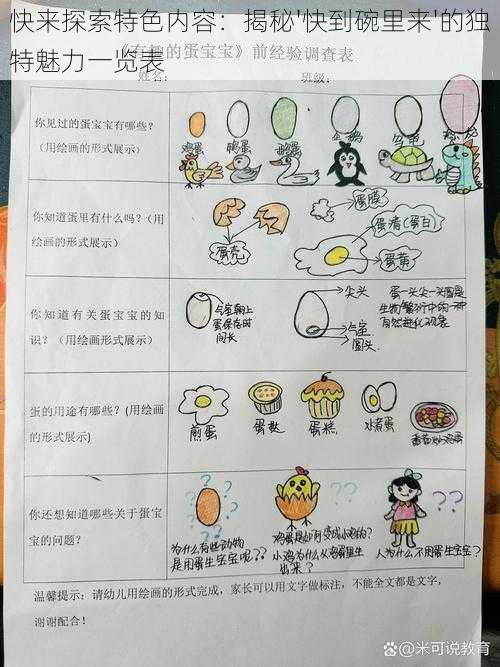 快来探索特色内容：揭秘'快到碗里来'的独
特魅力一览表
《有趣的蛋宝宝》前经验调查表
姓名： 班级：
你见过的蛋宝宝有哪些？
（用绘画的形式展示）
鸡蛋 鸭蛋 鹅蛋 企鹅 乌龟 恐龙
你知道蛋里有什么吗？（用
绘画的形式展示）
蛋壳
蛋膜
蛋清(蛋白)
蛋黄
你知道有关蛋宝宝的知
识？（用绘画形式展示）
气室朝上
蛋保存时
间长
尖头
气室
圆头
蛋一头尖一头圆是
生物繁衍中的一种
自然进化现象
蛋的用途有哪些？(用绘画
的形式展示)
煎蛋 蛋挞 蛋糕 水煮蛋 番茄炒鸡蛋
你还想知道哪些关于蛋宝
宝的问题？
?? ?? ??
为什么有些动物
是用蛋生宝宝呢??
鸡蛋是如何变成小鸡的?
小鸡为什么从鸡蛋里生
出来?
人为什么不用蛋生宝宝?
温馨提示：请幼儿用绘画的形式完成，家长可以用文字做标注，不能全文都是文字，
谢谢配合！
@米可说教育